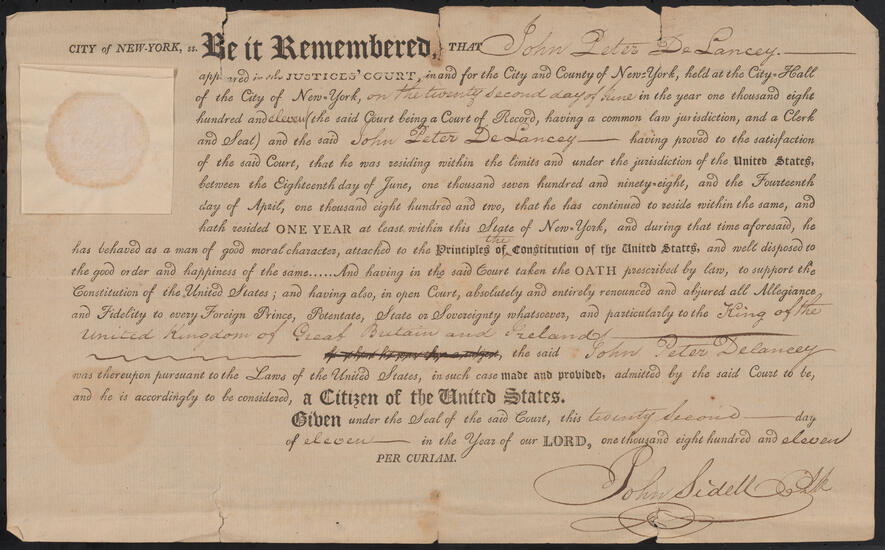 CITY of NEW-YORK, ss. Be it Remembered, THAT John Peter DeLancey.
appeared in the JUSTICES' COURT, in and for the City and County of New-York, held at the City-Hall
of the City of New-York, on the twenty second day of June in the year one thousand eight
hundred and eleven (the said Court being a Court of Record, having a common law jurisdiction, and a Clerk
and Seal) and the said John Peter DeLancey having proved to the satisfaction
of the said Court, that he was residing within the limits and under the jurisdiction of the United States,
between the Eighteenth day of June, one thousand seven hundred and ninety-eight, and the Fourteenth
day of April, one thousand eight hundred and two, that he has continued to reside within the same, and
hath resided ONE YEAR at least within this State of New-York, and during that time aforesaid, he
has behaved as a man of good moral character, attached to the Principles of the Constitution of the United States, and well disposed to
the good order and happiness of the same......And having in the said Court taken the OATH prescribed by law, to support the
Constitution of the United States; and having also, in open Court, absolutely and entirely renounced and abjured all Allegiance
and Fidelity to every Foreign Prince, Potentate, State or Sovereignty whatsoever, and particularly to the King of the
United Kingdom of Great Britain and Ireland
the said John Peter Delancey
was thereupon pursuant to the Laws of the United States, in such case made and provided, admitted by the said Court to be,
and he is accordingly to be considered, a Citizen of the United States.
Given under the Seal of the said Court, this twenty second day
of eleven in the Year of our LORD, one thousand eight hundred and eleven
PER CURIAM.
John Sidell Clk